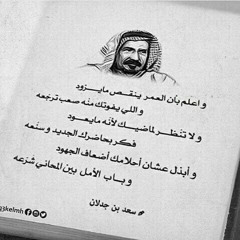 و اعلم بأن العمر ينقص مايزود
و اللي يفوتك منه صعب ترجعه
و لا تنظر لماضيك لأنه مايعود
فكر بحاضرك الجديد و سنعه
و أبذل عشان أحلامك أضعاف الجهود
و باب الأمل بين المحاني شرعه
سعد بن جدلان